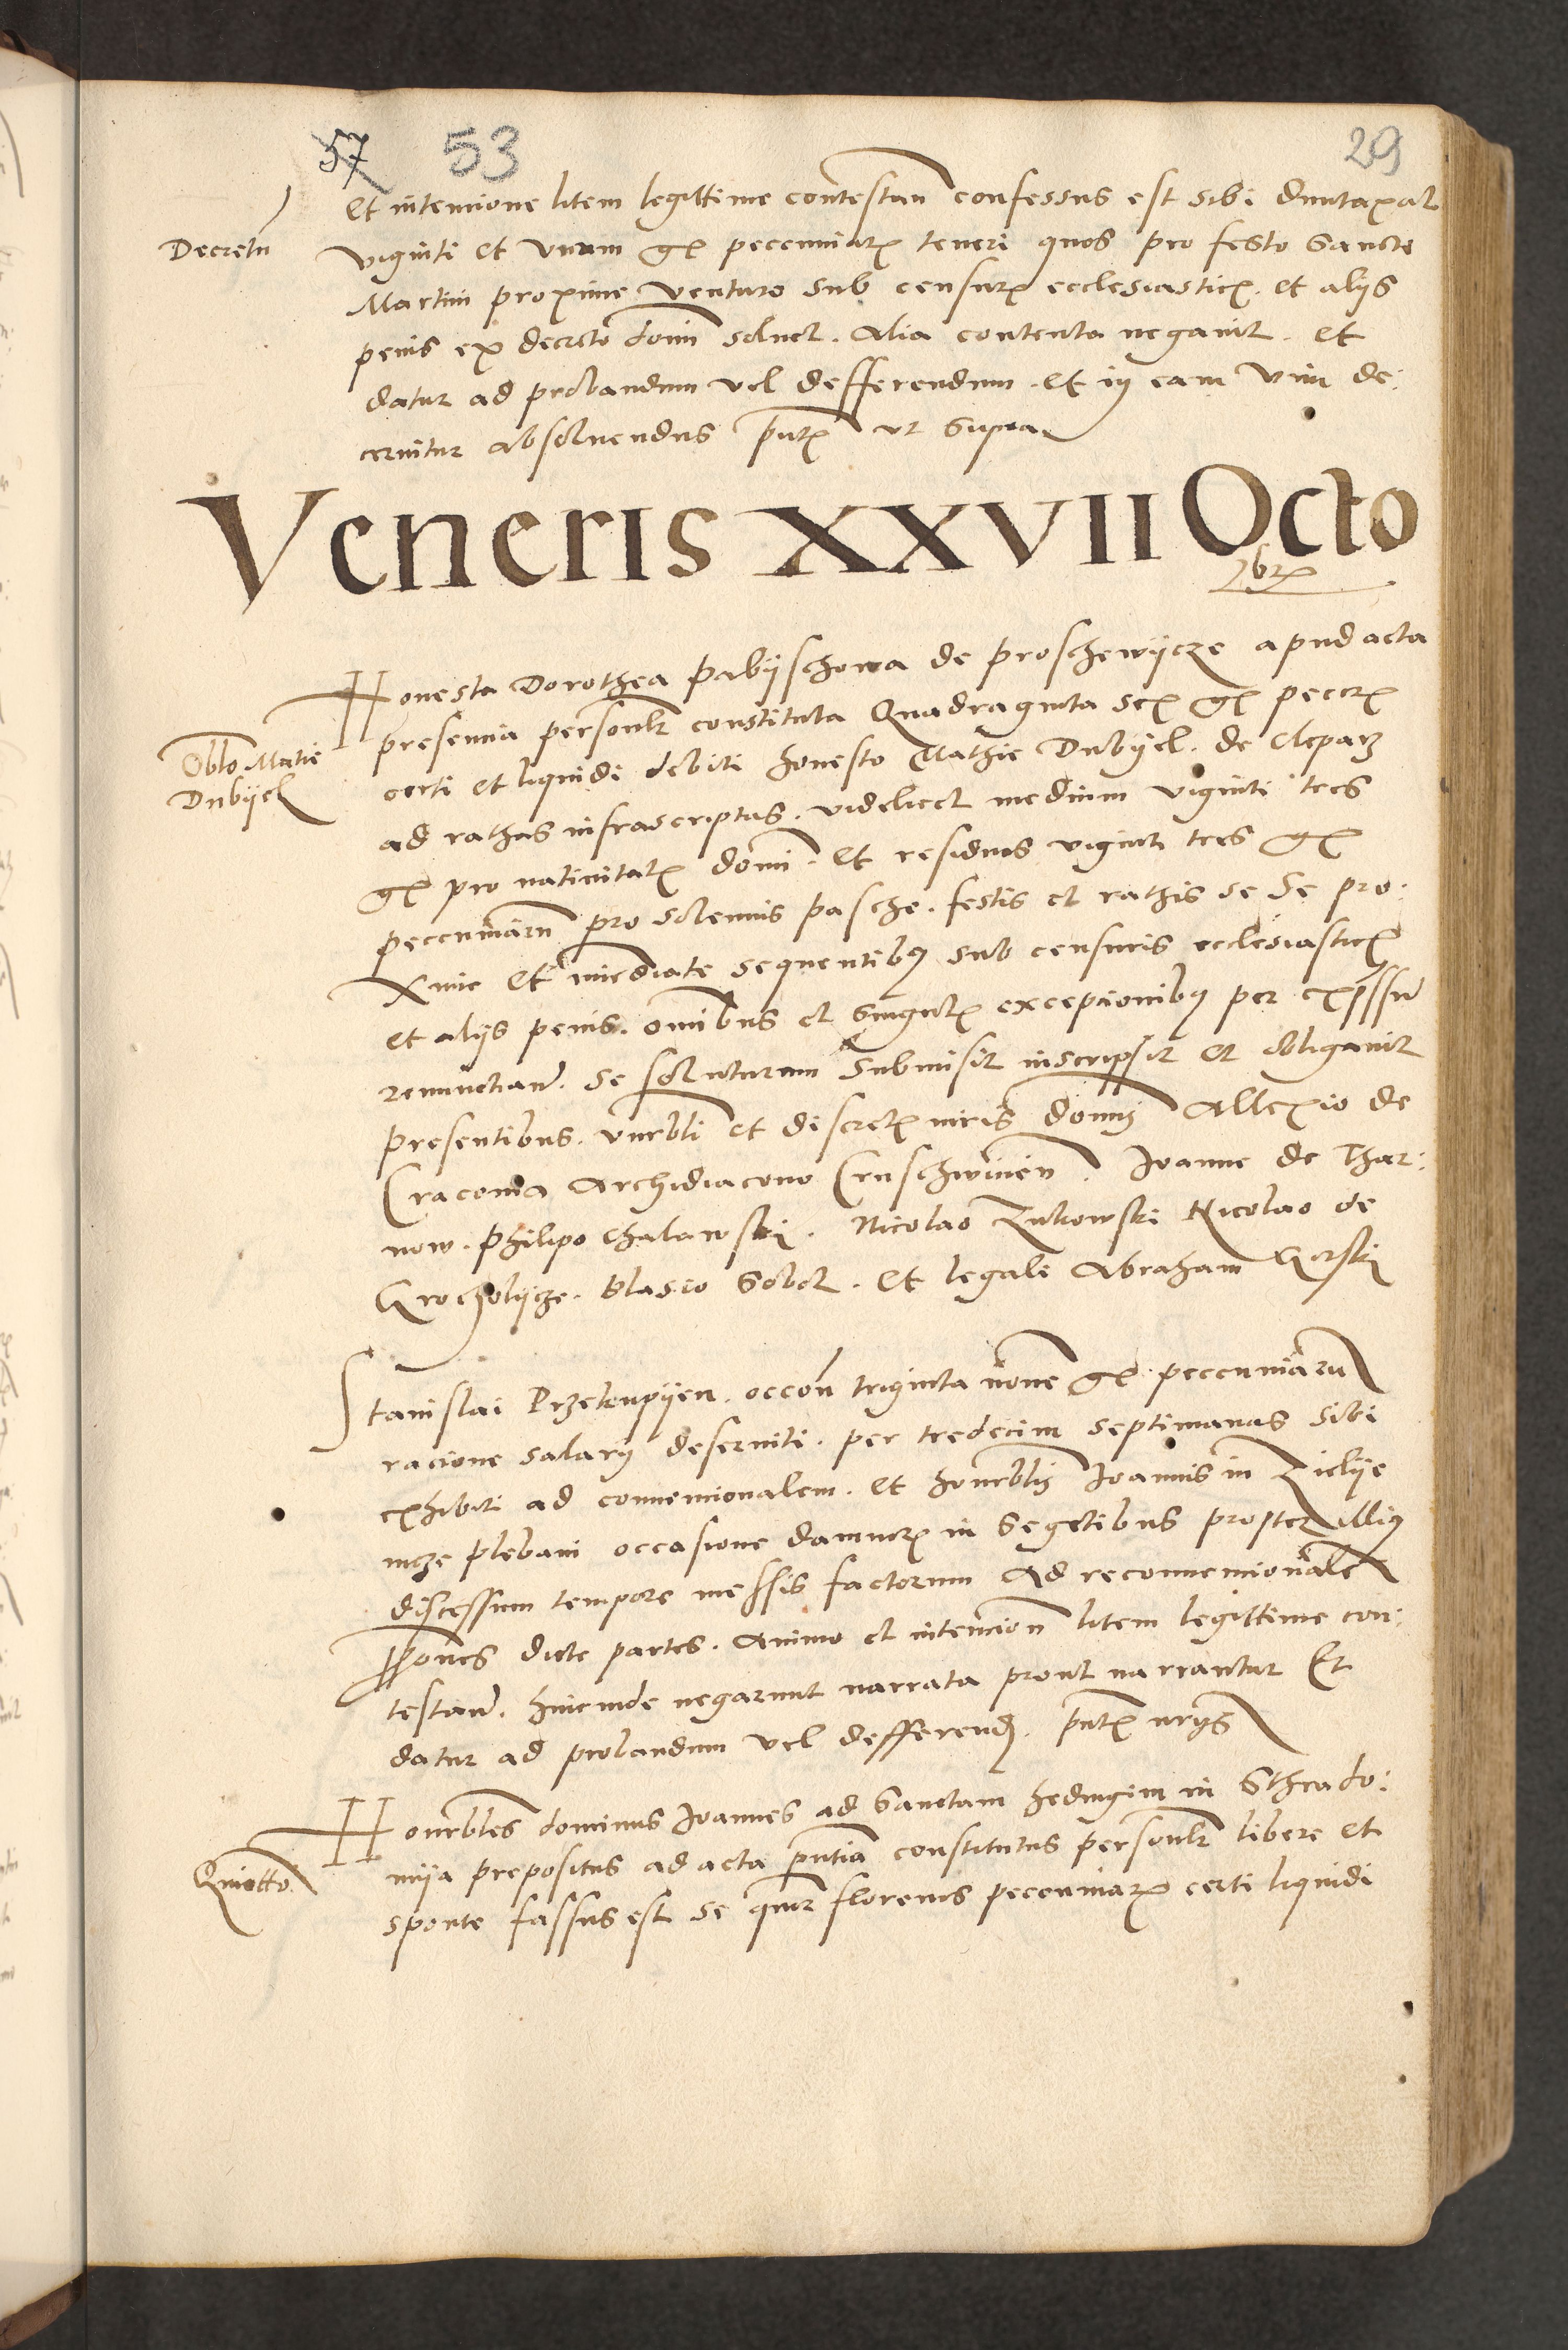 57 53 29
et intencione litem legittime contestan confessus est sibi duntaxat
Decretu
viginti et unum gr peccuniar teneri quos pro festo Sancte
Martini proxime venturo sub censur ecclesiastic. et alys
penis ex decreto domi soluet. Alia contenta negauit. et
datur ad probandum vel defferendum. et in eam vim de:
cernitur absoluendus pntr ut Supra
Veneris XXVII Octo
br
Honesta Dorothea pabyschowa de proschewycze apud acta
presencia personlr constituta Quadraginta sex gr peccr
Oblo Matie
Dubyel
certi et liquidi debiti honesto Mathie Dubyel. de Clepars
ad rathas infrascriptas. videlicet medium viginti tres
gr pro natiuitatr domi. et residuos viginti tres gr
peccuniaru pro solennis pasche. festis et rathis se Se pro:
xime et imediate sequentibus sub censuris ecclesiasticr
et alys penis. omibus et Singulr excepcionibus per expssu
renunctian. se soluturum Submisit inscripsit et obligauit
presentibus. vnrbli et discretr viris domis Allexio de
Cracouia Archidiacono Cruschwicien. Joanne de Thar:
now. philipo chalawski. Nicolao Zukowski Nicolao de
Grocholycze. blasio Sobol. et legali Abraham Gorski
Stanislai Przelenpyen. occon triginta none gr. peccuniaru
racione salary deseruiti. per tredecim septimanas sibi
exhibiti ad conuencionalem. et honrblis Joannis in Zielye
nicze plebani occasione damnorr in Segetibus propter illius
discessum tempore messis factorum Ad reconuencionale
ppones dicte partes. Animo et intencion litem legittime con:
testan. hincinde negarunt narrata prout narrantur Et
datur ad probandum vel defferend. pntr nrys
Honrbles dominus Joannes ad Sanctam heduigim in Sthrado:
Quietto
mya prepositus ad acta pntia constitutus personlr libere et
sponte fassus est se quor florenos peccuniar certi liquidi